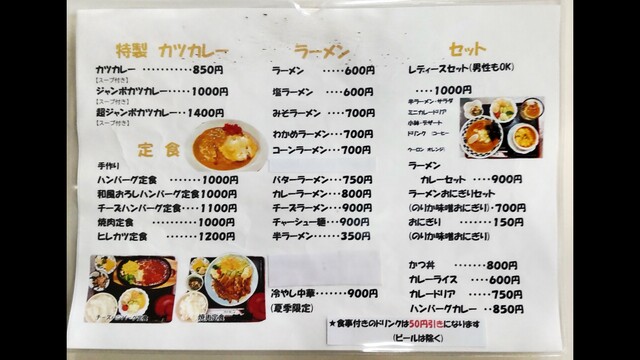 特製 カツカレー
カツカレー ・・・・・・・・・・・・850円
【スープ付き】
ジャンボカツカレー・・・・・1000円
【スープ付き】
超ジャンボカツカレー・・1400円
【スープ付き】
定食
手作り
ハンバーグ定食 ・・・・・・・1000円
和風おろしハンバーグ定食1000円
チーズハンバーグ定食・・・・1100円
焼肉定食 ・・・・・・・・・・1000円
ヒレカツ定食 ・・・・・・・1200円
チーズハンバーグ定食
焼肉定食
ラーメン
ラーメン ・・・・・600円
塩ラーメン ・・・・600円
みそラーメン ・・・・700円
わかめラーメン・・・700円
コーンラーメン・・・700円
バターラーメン・・・・750円
カレーラーメン・・・・800円
チーズラーメン・・・・900円
チャーシュー麺・・・900円
半ラーメン・・・・・・350円
冷やし中華・・・・・・・900円
(夏季限定)
セット
レディースセット(男性もOK)
・・・・1000円
半ラーメン・サラダ
ミニカレードリア
小鉢・デザート
ドリンク コーヒー
ウーロン オレンジ
ラーメン
カレーセット ・・・・900円
ラーメンおにぎりセット
(のりか味噌おにぎり)・700円
おにぎり ・・・・・・・・150円
(のりか味噌おにぎり)
かつ丼 ・・・・・・・800円
カレーライス ・・・・600円
カレードリア ・・・・・750円
ハンバーグカレー ・・850円
★食事付きのドリンクは50円引きになります
(ビールは除く)